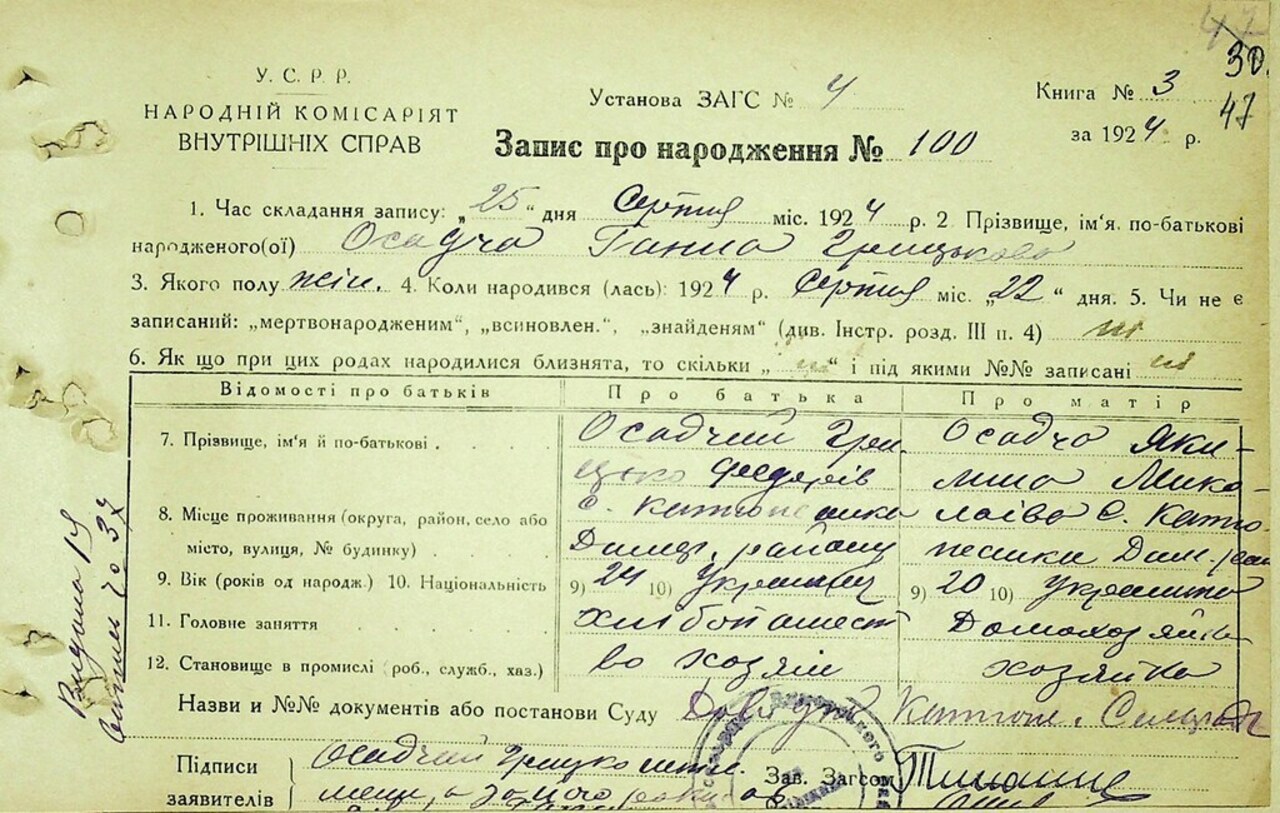 47
30.
47
У. С. Р. Р.
НАРОДНІЙ КОМІСАРІЯТ
ВНУТРІШНІХ СПРАВ
Установа ЗАГС № 4
Книга № 3
за 1924 р.
Запис про народження № 100
1. Час складання запису: „25“ дня Серпня міс. 1924 р. 2. Прізвище, ім'я, по-батькові
народженого(ої) Осадча Ганна Грицькова
3. Якого полу жін. 4. Коли народився (лась): 1924 р. Серпня міс. „22“ дня. 5. Чи не є
записаний: „мертвонародженим“, „всиновлен.“, „знайденям“ (див. Інстр. розд. III п. 4) ні
6. Як що при цих родах народилися близнята, то скільки „ні“ і під якими №№ записані ні
Відомості про батьків Про батька Про матір
7. Прізвище, ім'я й по-батькові Осадчий Гри- Осадча Яки-
цько Федорів мина Мико-
8. Місце проживання (округа, район, село або с. лаіва с.
місто, вулиця, № будинку) району
9. Вік (років од народж.) 10. Національність 9) 24 10) Українец 9) 20 10) Українка
11. Головне заняття Хлібопашест Домохозяйка
12. Становище в промислі (роб., служб., хаз.) во хозяін хозяйка
Назви и №№ документів або постанови Суду
Підписи
заявителів
Осадчий Грицко
Зав. Загсом